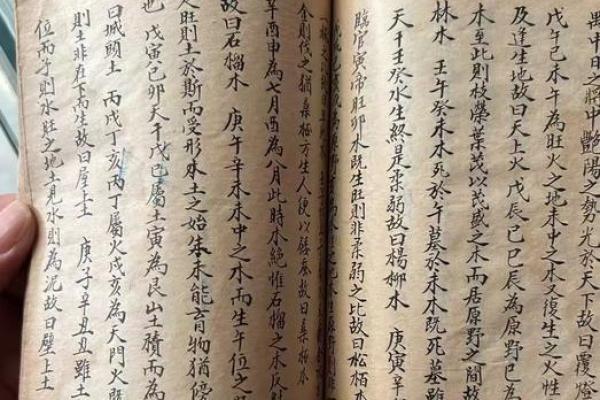 禺中日之將中 艷陽之勢光於天下故曰覆燈
戊午己未午為旺火之地未中之木又復生之火性
及逢生地故曰天上火 戊辰己巳辰為原野巳為
木至此則枝榮葉茂以茂盛之木而居原野之間故
林木 壬午癸未木死於午墓於未木既死墓雖
天干壬癸水生終是柔弱故曰楊柳木 庚寅辛
臨官寅帝旺卯木既生旺則非柔弱之比故曰松柏木
金則伐之猶桑柘方生人便以 蚕故曰桑柘木
辛酉申為七月酉為八月此時木絕惟石榴之木反
故曰石榴木 庚午辛未未中之木而生午位之
之旺則土於斯而受形 土之始 未能育物猶傍
也 戊寅己卯天干戊己屬土寅為艮山土積而為
曰城頭土 丙戌丁亥丙丁屬火戌亥為天門火既
則土非在下而生故曰屋上土 庚子辛丑丑雖土
位而子則水旺之地土見水則為泥故曰壁上土